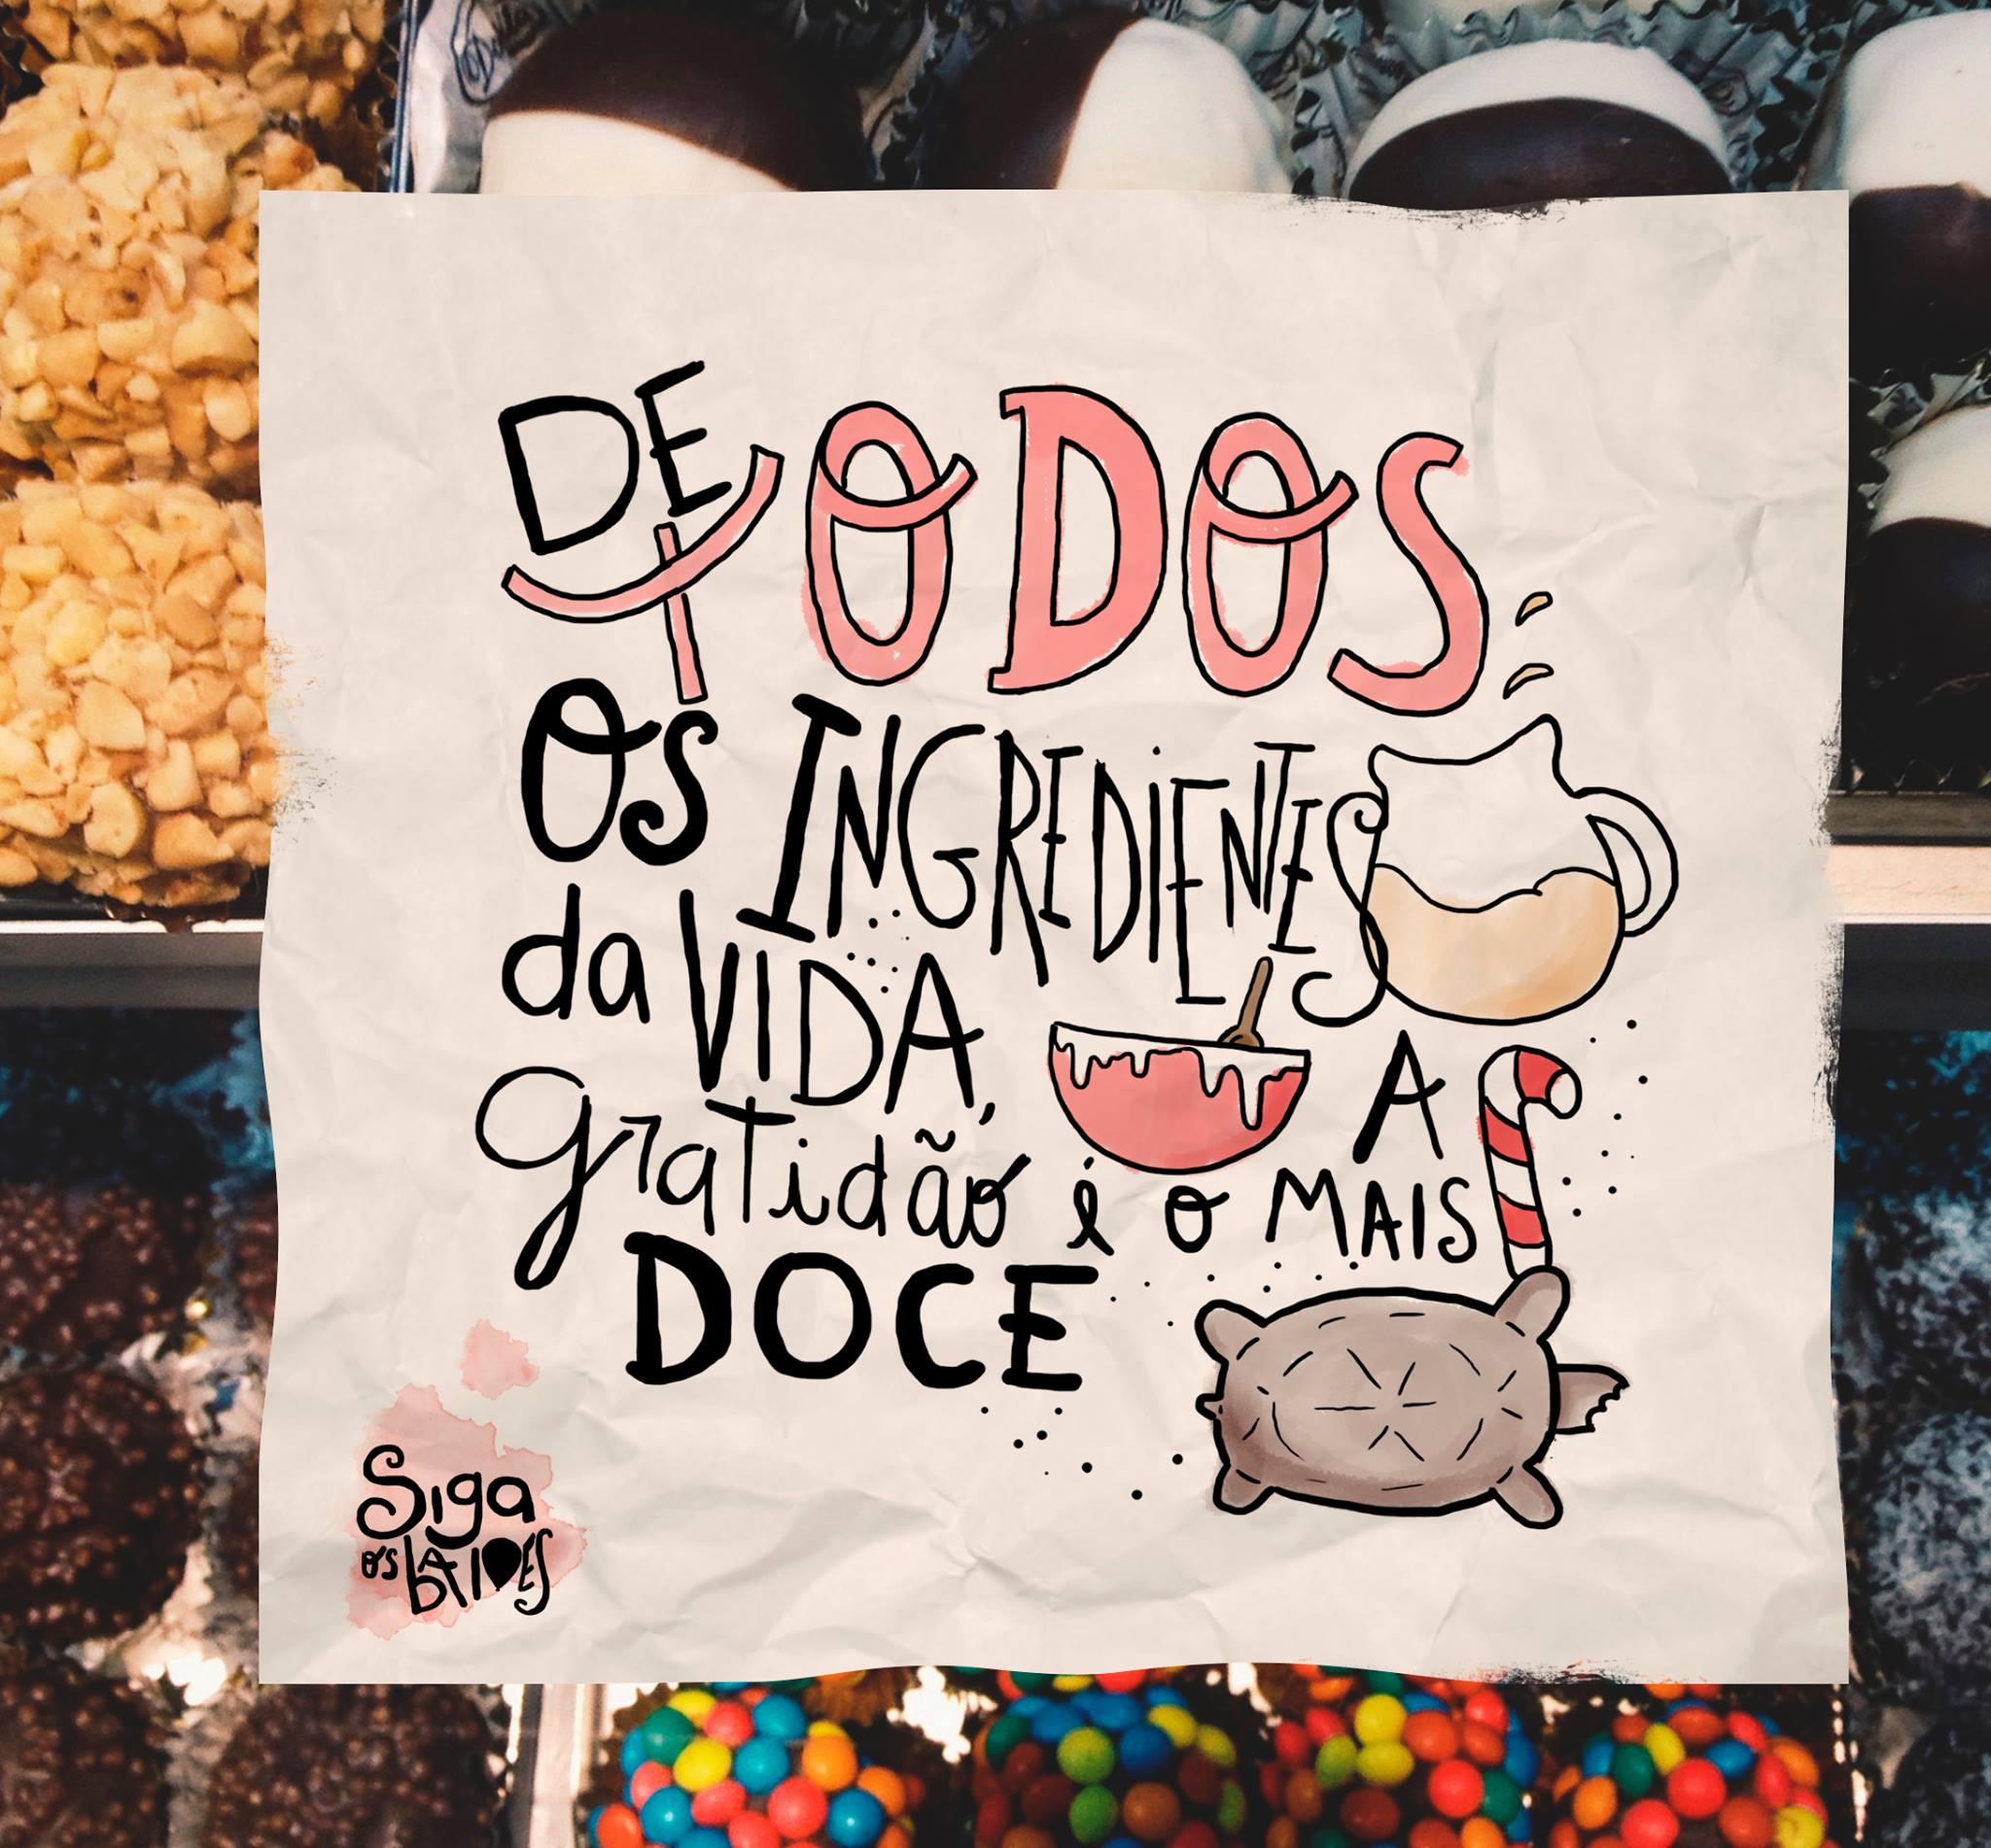 DE
TODOS
OS INGREDIENTES
da VIDA,
A
gratidão é o MAIS
DOCE
Siga
os BAIDES